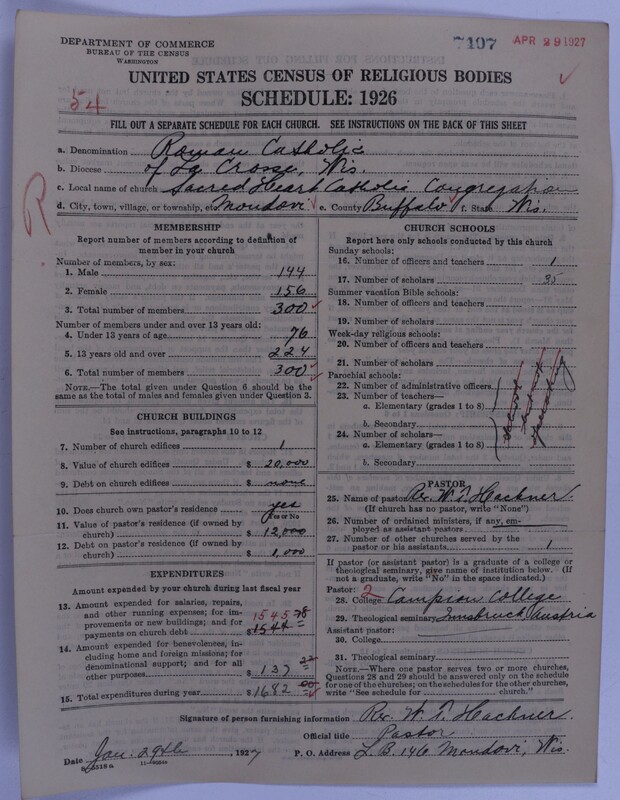 DEPARTMENT OF COMMERCE
BUREAU OF THE CENSUS
WASHINGTON
7107
APR 29 1927
UNITED STATES CENSUS OF RELIGIOUS BODIES
SCHEDULE: 1926
54
FILL OUT A SEPARATE SCHEDULE FOR EACH CHURCH. SEE INSTRUCTIONS ON THE BACK OF THIS SHEET
a. Denomination Roman Catholic
b. Diocese of La Crosse, Wis.
c. Local name of church Sacred Heart Catholic Congregation
d. City, town, village, or township, etc. Mondovi e. County Buffalo f. State Wis.
R
MEMBERSHIP
Report number of members according to definition of
member in your church
Number of members, by sex:
1. Male 144
2. Female 156
3. Total number of members 300
Number of members under and over 13 years old:
4. Under 13 years of age 76
5. 13 years old and over 224
6. Total number of members 300
NOTE.—The total given under Question 6 should be
same as the total of males and females given under Question 3.
CHURCH BUILDINGS
See instructions, paragraphs 10 to 12
7. Number of church edifices 1
8. Value of church edifices $ 20,000
9. Debt on church edifices $ none
10. Does church own pastor's residence? yes
Yes or No
11. Value of pastor's residence (if owned by
church) $ 12,000
12. Debt on pastor's residence (if owned by
church) $ 1,000
EXPENDITURES
Amount expended by your church during last fiscal year
13. Amount expended for salaries, repairs,
and other running expenses; for im-
provements or new buildings; and for
payments on church debt $ 1544
1545 78
14. Amount expended for benevolences, in-
cluding home and foreign missions; for
denominational support; and for all
other purposes $ 137 22
15. Total expenditures during year $ 1682 00
CHURCH SCHOOLS
Report here only schools conducted by this church
Sunday schools:
16. Number of officers and teachers 1
17. Number of scholars 35
Summer vacation Bible schools:
18. Number of officers and teachers
19. Number of scholars
Week-day religious schools:
20. Number of officers and teachers
21. Number of scholars
Parochial schools:
22. Number of administrative officers
23. Number of teachers—
a. Elementary (grades 1 to 8)
b. Secondary
24. Number of scholars—
a. Elementary (grades 1 to 8)
b. Secondary
PASTOR
25. Name of pastor Rev. W. T. Hackner.
(If church has no pastor, write "None")
26. Number of ordained ministers, if any, em-
ployed as assistant pastors
27. Number of other churches served by the
pastor or his assistants 1
If pastor (or assistant pastor) is a graduate of a college or
theological seminary, give name of institution below. (If
not a graduate, write "No" in the space indicated.)
Pastor: 2
28. College Campion College
29. Theological seminary Innsbruck Austria
Assistant pastor:
30. College
31. Theological seminary
NOTE.—Where one pastor serves two or more churches,
Questions 28 and 29 should be answered only on the schedule
for one of the churches; on the schedules for the other churches,
write "See schedule for church."
Signature of person furnishing information Rev. W. T. Hackner.
Official title Pastor
Date Jan. 29th, 1927 P. O. Address L. B. 146 Mondovi, Wis.